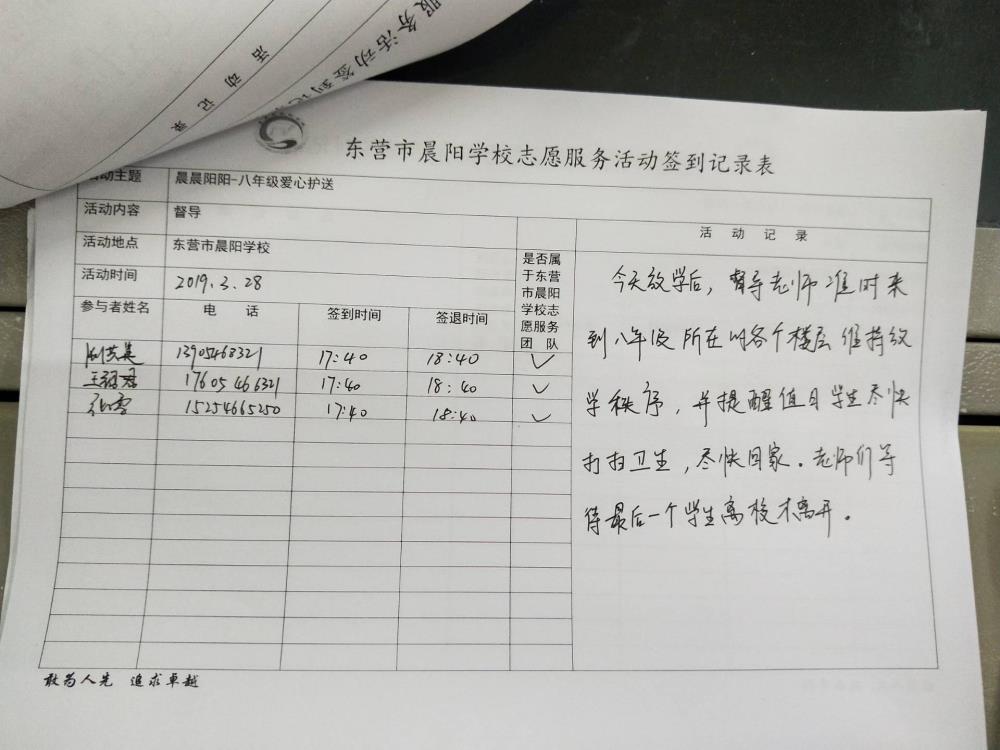 服务活动签到记
活动记录
东营市晨阳学校志愿服务活动签到记录表
活动主题 晨晨阳阳-八年级爱心护送
活动内容 督导
活动地点 东营市晨阳学校
活动时间 2019.3.28
参与者姓名 电话 签到时间 签退时间
是否属
于东营
市晨阳
学校志
愿服务
团队
17:40 18:40 ✓
17605466321 17:40 18:40 ✓
张雪 15254665250 17:40 18:40 ✓
活动记录
今天放学后，督导老师准时来
到八年级所在的各个楼层维持放
学秩序，并提醒值日学生尽快
打扫卫生，尽快回家。老师们等
待最后一个学生离校才离开。
敢为人先 追求卓越